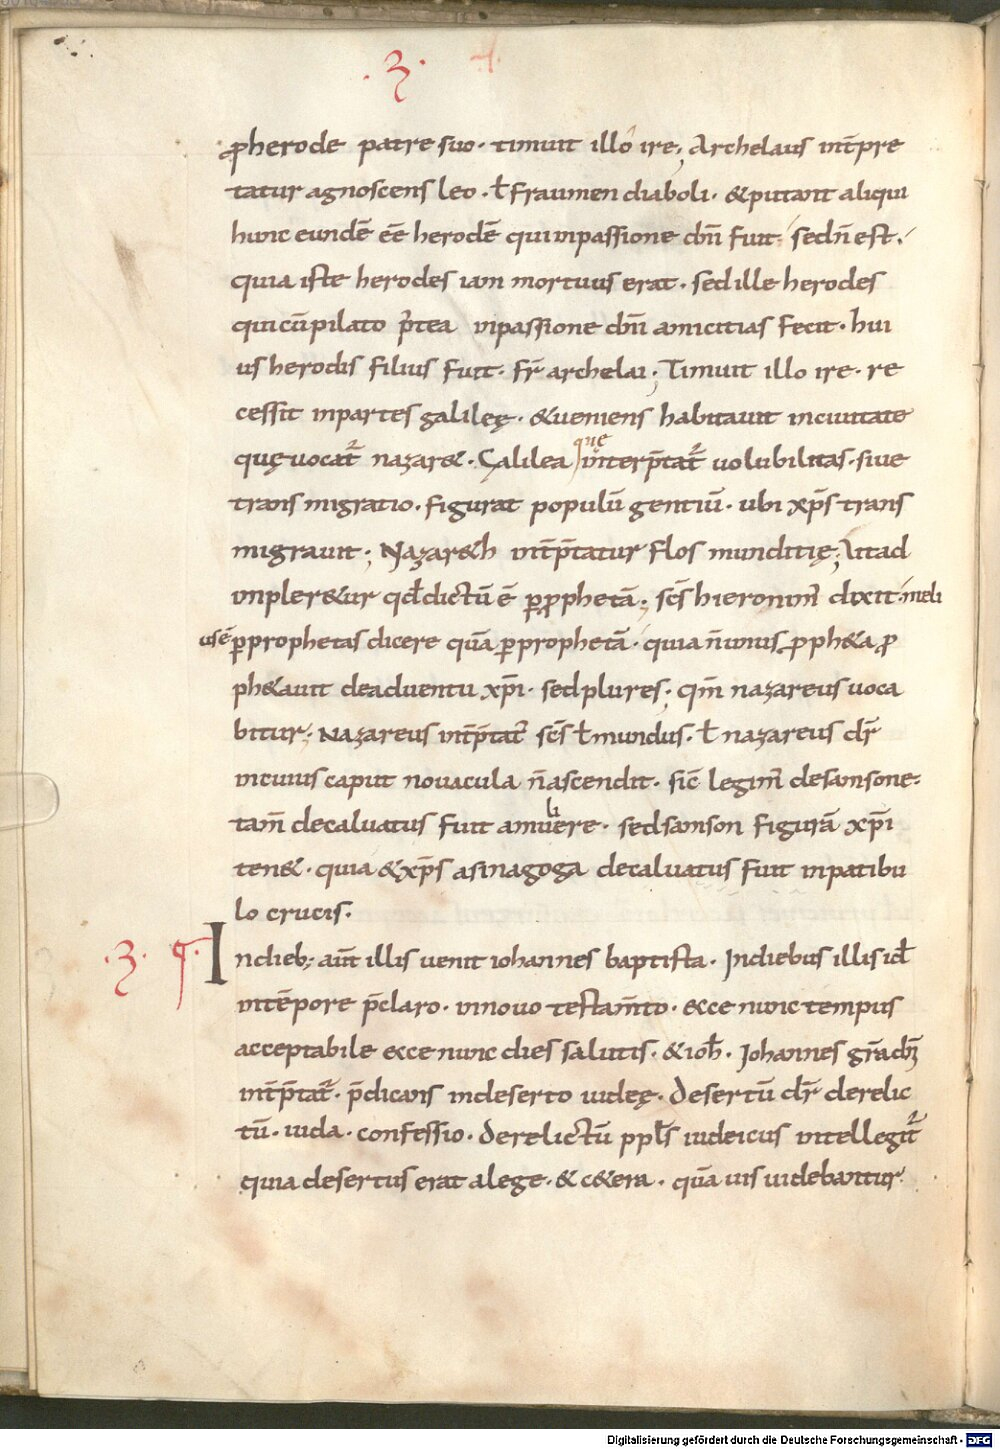 .3.
ꝓherode patre suo · timuit illo ire; Archelaus int̄pre
tatur agnoscens leo · ƚ fraumen diaboli · &putant aliqui
hunc eundē eē herodē quiinpassione dn̄i fuit · sedn̄ est ·
quia iste herodes iam mortuus erat · sed ille herodes
quicū pilato p̄tea inpassione dn̄i amicitias fecit · hui
us herodis filius fuit · fr̄ archelai; Timuit illo ire · re
cessit inpartes galileę · &ueniens habitauit inciuitate
quę uocat᷑ nazar& · Galilea quę interp̄tat᷑ uolubilitas · siue
trans migratio · figurat populū gentiū · ubi xp̄s trans
migrauit; Nazar&h int̄p̄tatur flos munditię; Vt ad
impler&ur qd̄ dictū ē ꝑ ꝓphetā · sc̄s hieronim᷒ dixit · meli
us ē ꝑ prophetas dicere quā ꝑ prophetā · quia n̄ unus ꝓph&a ꝓ
ph&auit deaduentu xp̄i · sed plures; qm̄ nazareus uoca
bitur; Nazareus int̄p̄tat᷑ sc̄s ƚ mundus · ƚ nazareus dr̄
incuius caput nouacula n̄ ascendit · sic̄ legim᷒ desamsone ·
tam̄ decaluatus fuit amuliere · sed samson figurā xp̄i
ten& · quia &xp̄s asinagoga decaluatus fuit inpatibu
lo crucis ·
.3. Indieb; aut̄ illis uenit iohannes baptista · Indiebus illis id̄
intēpore p̄claro · innouo testam̄to · ecce nunc tempus
acceptabile ecce nunc dies salutis · &ioh̄ · Iohannes gr̄a dn̄i
int̄p̄tat᷑ · p̄dicans indeserto iudeę · Desertū dr̄ derelic
tū · iuda · confessio · Derelictū ppl̄s iudeicus intellegit᷑
quia desertus erat alege · & c&era · quā uis uidebantur
Digitalisierung gefördert durch die Deutsche Forschungsgemeinschaft - DFG